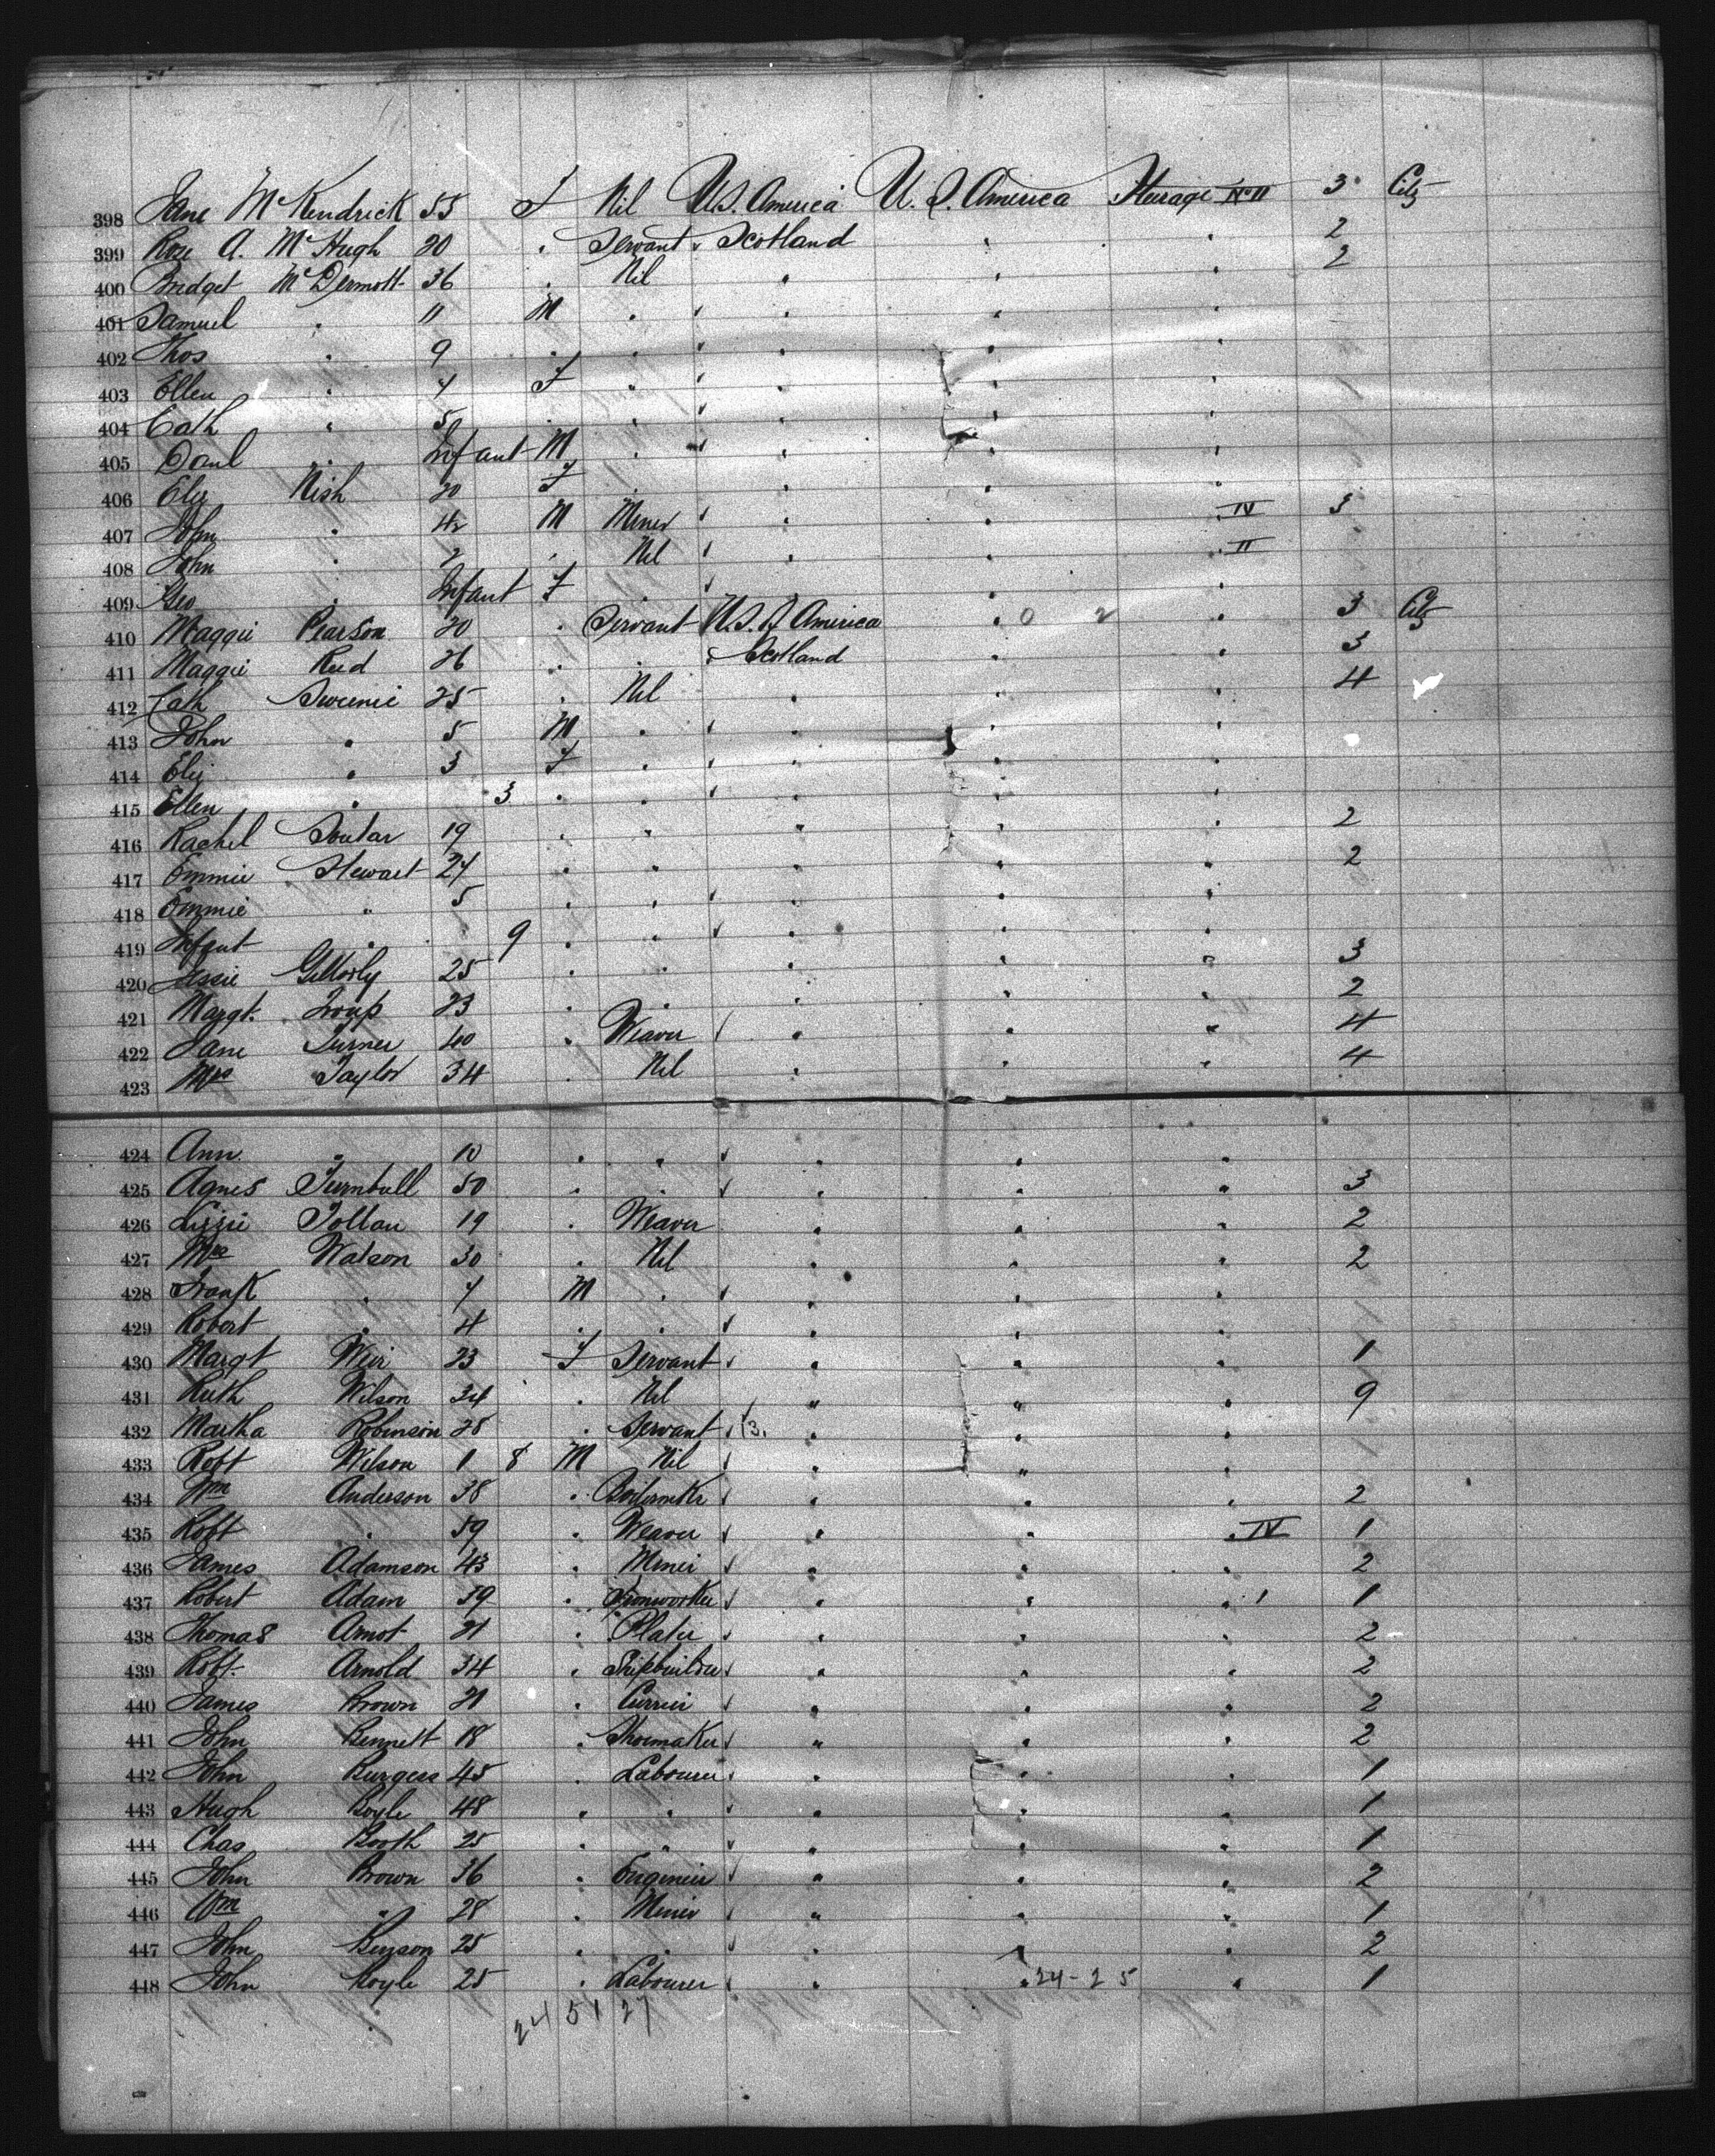 398 Jane McKendrick 55 F Nil U.S. America U.S. America Steerage No II 3 City
399 Rose A. McHugh 20 " Servant Scotland " " 2
400 Bridget McDermott 36 " Nil " " " 2
401 Samuel " 11 M " " " "
402 Thos " 9 " " " " "
403 Ellen " 7 F " " " "
404 Cath " 5 " " " " "
405 Danl " Infant M " " " "
406 Eliz Nish 20 F " " " "
407 John " 42 M Miner " " " IV 3
408 John " 2 " Nil " " " II
409 Geo " Infant F " " " "
410 Maggie Pearson 20 " Servant U.S. of America " 0 2 " 3 City
411 Maggie Reid 26 " " Scotland " " 3
412 Cath Sweenie 25 " Nil " " " 4
413 John " 5 M " " " "
414 Eliz " 3 F " " " "
415 Ellen " 3 " " " " "
416 Rachel Soutar 19 " " " " " 2
417 Emmie Stewart 27 " " " " " 2
418 Emmie " 5 " " " " "
419 Infant " 9 " " " " "
420 Jessie 25 " " " " " 3
421 Margt. Troup 23 " " " " 2
422 Jane Turner 40 " Weaver " " " 4
423 Mrs Taylor 34 " Nil " " " 4
424 Ann " 10 " " " " "
425 Agnes Turnbull 50 " " " " " 3
426 Lizzie Tollan 19 " Weaver " " " 2
427 Mrs Watson 30 " Nil " " " 2
428 Frank " 7 M " " " "
429 Robert " 4 " " " " "
430 Margt Weir 23 F Servant " " " 1
431 Ruth Wilson 34 " Nil " " " 9
432 Martha Robinson 28 " Servant 13. " " "
433 Robt Wilson 1 8 M Nil " "
434 Wm Anderson 38 " Boilermkr " " " 2
435 Robt " 59 " Weaver " " " IV 1
436 James Adamson 43 " Miner " " " 2
437 Robert Adam 59 " Ironworker " " " 1
438 Thomas Arnot 21 " Plater " " " 2
439 Robt. Arnold 34 " Shipbuilder " " " 2
440 James Brown 21 " Currier " " " 2
441 John Bennett 18 " Shoemaker " " " 2
442 John Burgess 45 " Labourer " " " 1
443 Hugh Boyle 48 " " " " " 1
444 Chas Booth 25 " " " " " 1
445 John Brown 36 " Engineer " " " 2
446 Wm " 28 " Miner " " " 1
447 John Benson 25 " " " " 2
448 John Boyle 25 " Labourer " " 24-25 " 1
24 51 27